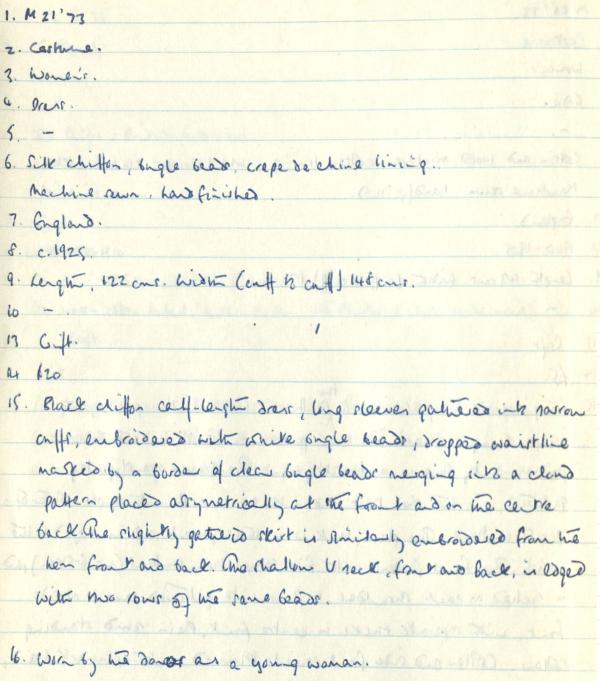 1. M 21 '73
2. Costume.
3. Women's.
4. Dress.
5. –
6. Silk chiffon, bugle beads, crepe de chine lining.
Machine sewn, hand finished.
7. England.
8. c.1925
9. Length, 122 cms. Width (cuff to cuff) 148 cms.
10 –
13 Gift.
14 £20
15. Black chiffon calf-length dress, long sleeves gathered into narrow
cuffs, embroidered with white bugle beads, dropped waistline
marked by a border of clear bugle beads merging into a cloud
pattern placed assymetrically at the front and on the centre
back. The slightly gathered skirt is similarly embroidered from the
hem front and back. The shallow U neck, front and back, is edged
with two rows of the same beads.
16. Worn by the donor as a young woman.